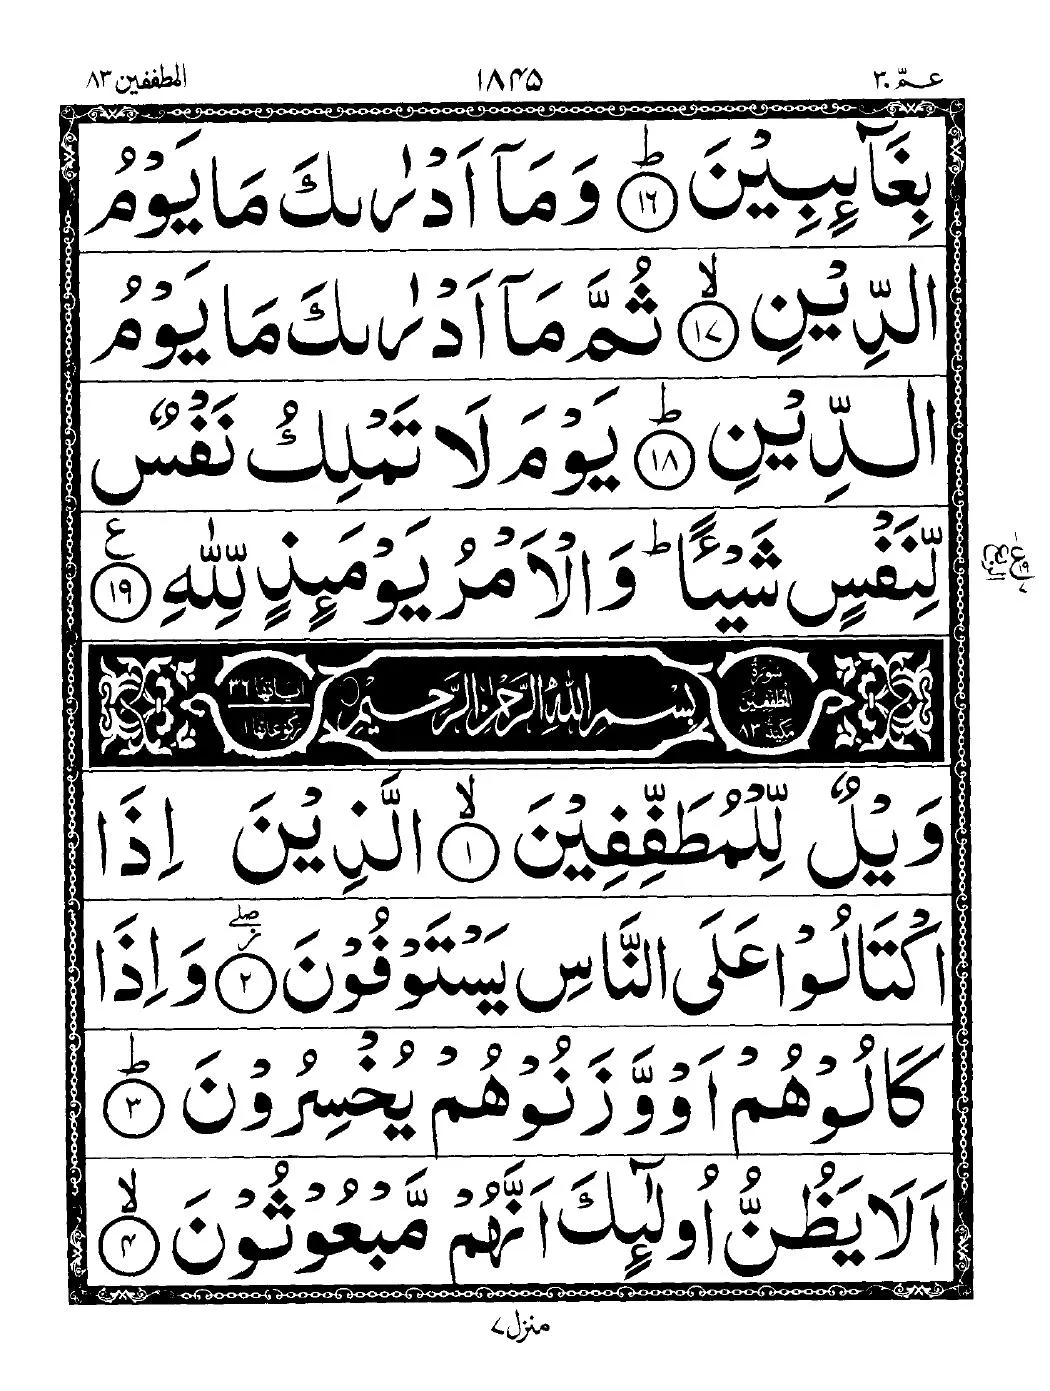 عـمّ ٣٠
١٨٤٥
المطففين ٨٣
بِغَآئِبِيْنَ ؕ ﴿١٦﴾ وَ مَاۤ اَدْرٰىكَ مَا يَوْمُ
الدِّيْنِ ۙ ﴿١٧﴾ ثُمَّ مَاۤ اَدْرٰىكَ مَا يَوْمُ
الدِّيْنِ ؕ ﴿١٨﴾ يَوْمَ لَا تَمْلِكُ نَفْسٌ
لِّنَفْسٍ شَيْـًٔا ؕ وَ الْاَمْرُ يَوْمَئِذٍ لِّلّٰهِ ﴿١٩﴾ ع
سورة المطففين مكية ٨٣
بسم الله الرحمن الرحيم
اٰياتها ٣٦
ركوعاتها ١
وَيْلٌ لِّلْمُطَفِّفِيْنَ ۙ ﴿١﴾ الَّذِيْنَ اِذَا
اكْتَالُوْا عَلَى النَّاسِ يَسْتَوْفُوْنَ ۖ ﴿٢﴾ وَ اِذَا
كَالُوْهُمْ اَوْ وَّزَنُوْهُمْ يُخْسِرُوْنَ ؕ ﴿٣﴾
اَلَا يَظُنُّ اُولٰٓئِكَ اَنَّهُمْ مَّبْعُوْثُوْنَ ۙ ﴿٤﴾
منزل ٧